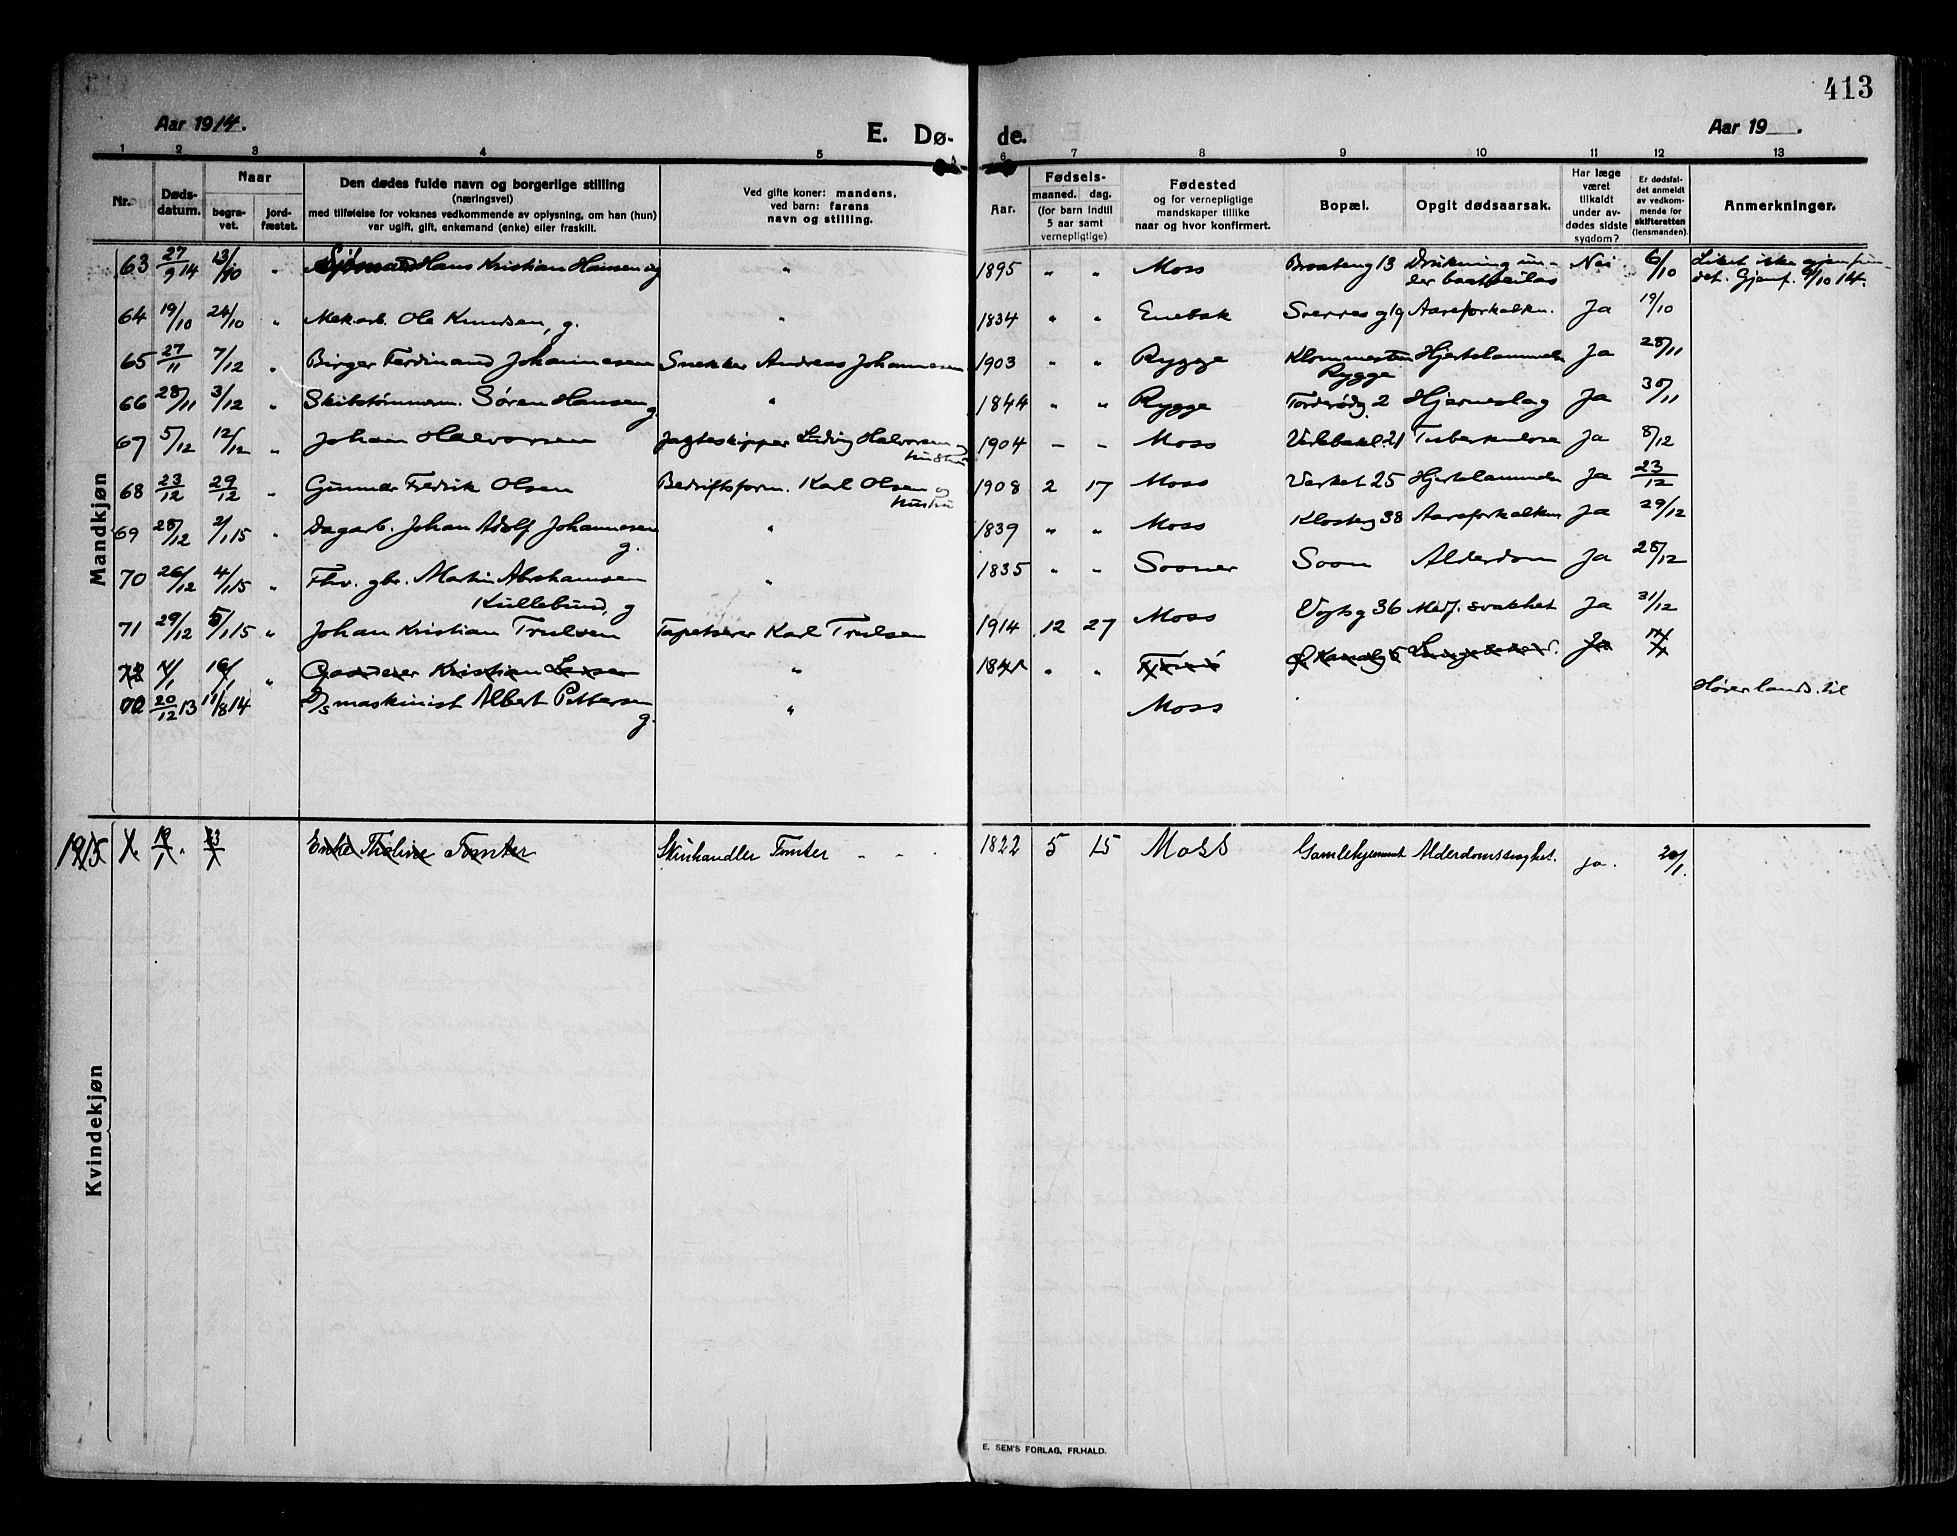 413
Aar 1914. E. Dø- de. Aar 19 .
1 2 3 4 5 6 7 8 9 10 11 12 13
Nr. Døds-datum. Naar begra-vet. jord-fæstet. Den dødes fulde navn og borgerlige stilling (næringsvei) med tilføielse for voksnes vedkommende av oplysning, om han (hun) var ugift, gift, enkemand (enke) eller fraskilt. Ved gifte koner: mandens, ved barn: farens navn og stilling. Aar. Fødsels- maaned. dag. (for barn indtil 5 aar samt vernepligtige) Fødested og for vernepligtige mandskaper tillike naar og hvor konfirmert. Bopæl. Opgit dødsaarsak. Har læge været tilkaldt under av-dødes sidste sygdom? Er dødsfal-det anmeldt av vedkom-mende for skifteretten (lensmanden). Anmerkninger.
Mandkjøn
63 27/9 14 13/10 " Sjømand Hans Kristian Hansen ug " 1895 " " Moss Braateng 13 Drukning un-der baatseilas Nei 6/10 Liket ikke gjenfun-det. Gjenf. 9/10 14.
64 19/10 24/10 " Mek.arb. Ole Knudsen, g. " 1834 " " Enebak Sverres g 19 Aareforkalkn. Ja 19/10
65 27/11 7/12 " Birger Ferdinand Johannesen Snekker Andreas Johannesen 1903 " " Rygge Klommesten Rygge Hjertelammelse Ja 28/11
66 28/11 3/12 " Skibstømmerm. Søren Hansen g " 1844 " " Rygge Tordrødg. 2 Hjerneslag Ja 30/11
67 5/12 12/12 " Johan Halvorsen Jagteskipper Ludvig Halvorsen og hustru 1904 – – Moss Verkbakk. 21 Tuberkulose Ja 8/12
68 23/12 29/12 " Gunnar Fredrik Olsen Bedriftsform. Karl Olsen og hustru 1908 2 17 Moss Verket 25 Hjertelammelse Ja 23/12
69 28/12 2/1 15 " Dagarb. Johan Adolf Johannesen g. " 1839 " " Moss Klosterg 38 Aareforkalkn Ja 29/12
70 26/12 4/1 15 " Fhv. gbr. Martin Abrahamsen Kullebund, g " 1835 " " Sooner Soon Alderdom Ja 28/12
71 29/12 5/1 15 " Johan Kristian Trulsen Tapetserer Karl Trulsen 1914 12 27 Moss Vogts g 36 Medf. svakhet Ja 31/12
72 " Kristian Larsen " " " Kanalg 5 Ja
72 20/12 13 11/8 14 D/s maskinist Albert Pettersen g. " Moss Høier lands. til
Kvindekjøn
1915 1. 19/1 " 23/1 Enke Tholine Tomter Skinhandler Tomter 1822 5 15 Moss Gamlehjemmet Alderdomssvaghet. ja. 20/1.
E. SEM'S FORLAG, FR.HALD.